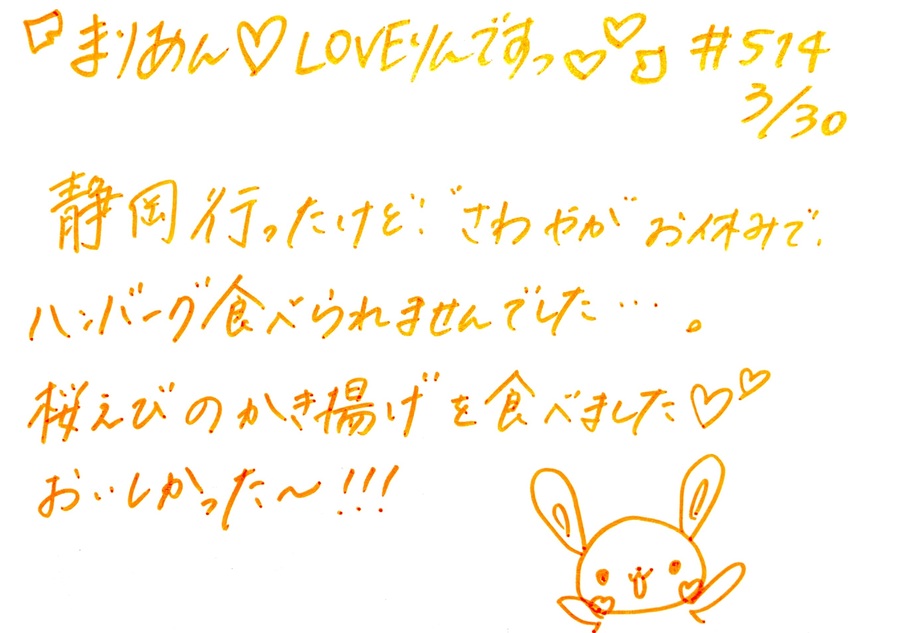 『まりあん♡LOVEりんですっ♡♡』#514
3/30
静岡行ったけど、"さわやか"お休みで、
ハンバーグ食べられませんでした…。
桜えびのかき揚げを食べました♡♡
おいしかった〜!!!